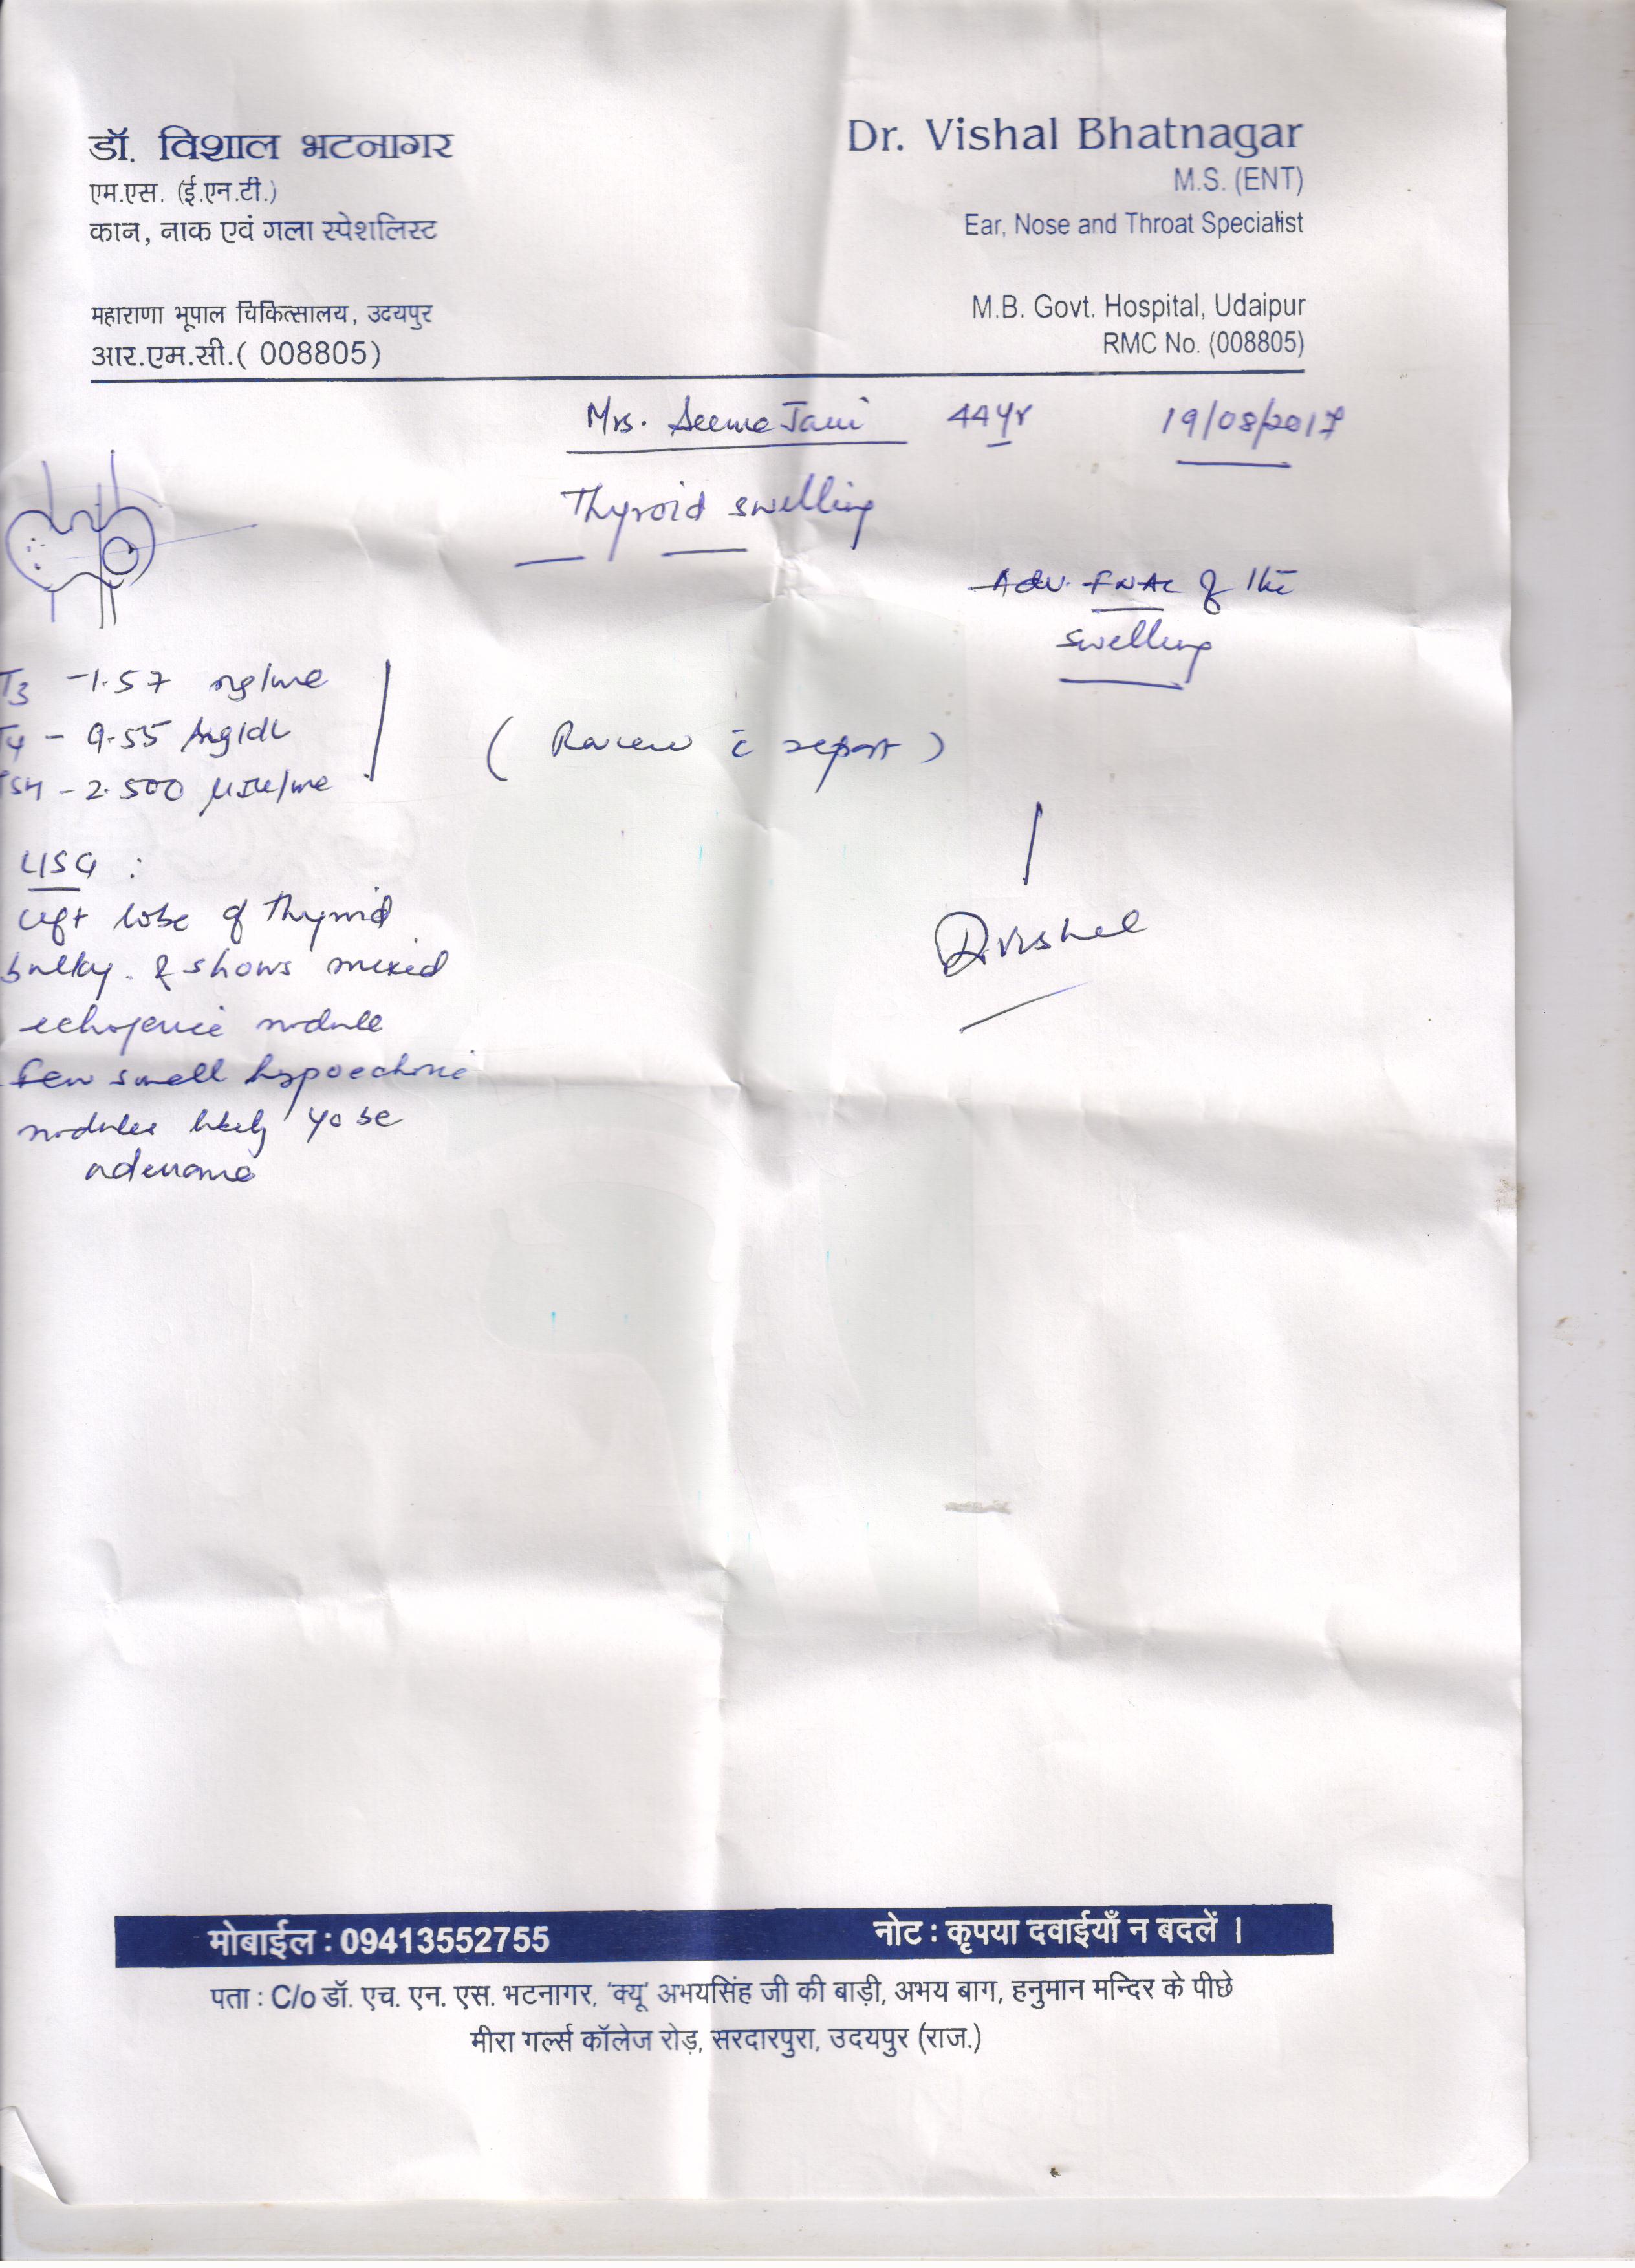 डॉ. विशाल भटनागर
एम.एस. (ई.एन.टी.)
कान, नाक एवं गला स्पेशलिस्ट
महाराणा भूपाल चिकित्सालय, उदयपुर
आर.एम.सी.( 008805)
Dr. Vishal Bhatnagar
M.S. (ENT)
Ear, Nose and Throat Specialist
M.B. Govt. Hospital, Udaipur
RMC No. (008805)
Mrs. Seema 44 yr 19/08/2017
Thyroid swelling
Adv. FNAC of the
swelling
T3 - 1.57 ng/ml
T4 - 9.55 µg/dl
TSH - 2.500 µIU/ml
( Review c̄ report )
Dr Vishal
USG :
Left lobe of Thyroid
bulky. & shows mixed
echogenic nodule
Few small hypoechoic
nodules likely to be
adenoma
मोबाईल : 09413552755
नोट : कृपया दवाईयाँ न बदलें ।
पता : C/o डॉ. एच. एन. एस. भटनागर, 'क्यू' अभयसिंह जी की बाड़ी, अभय बाग, हनुमान मन्दिर के पीछे
मीरा गर्ल्स कॉलेज रोड़, सरदारपुरा, उदयपुर (राज.)